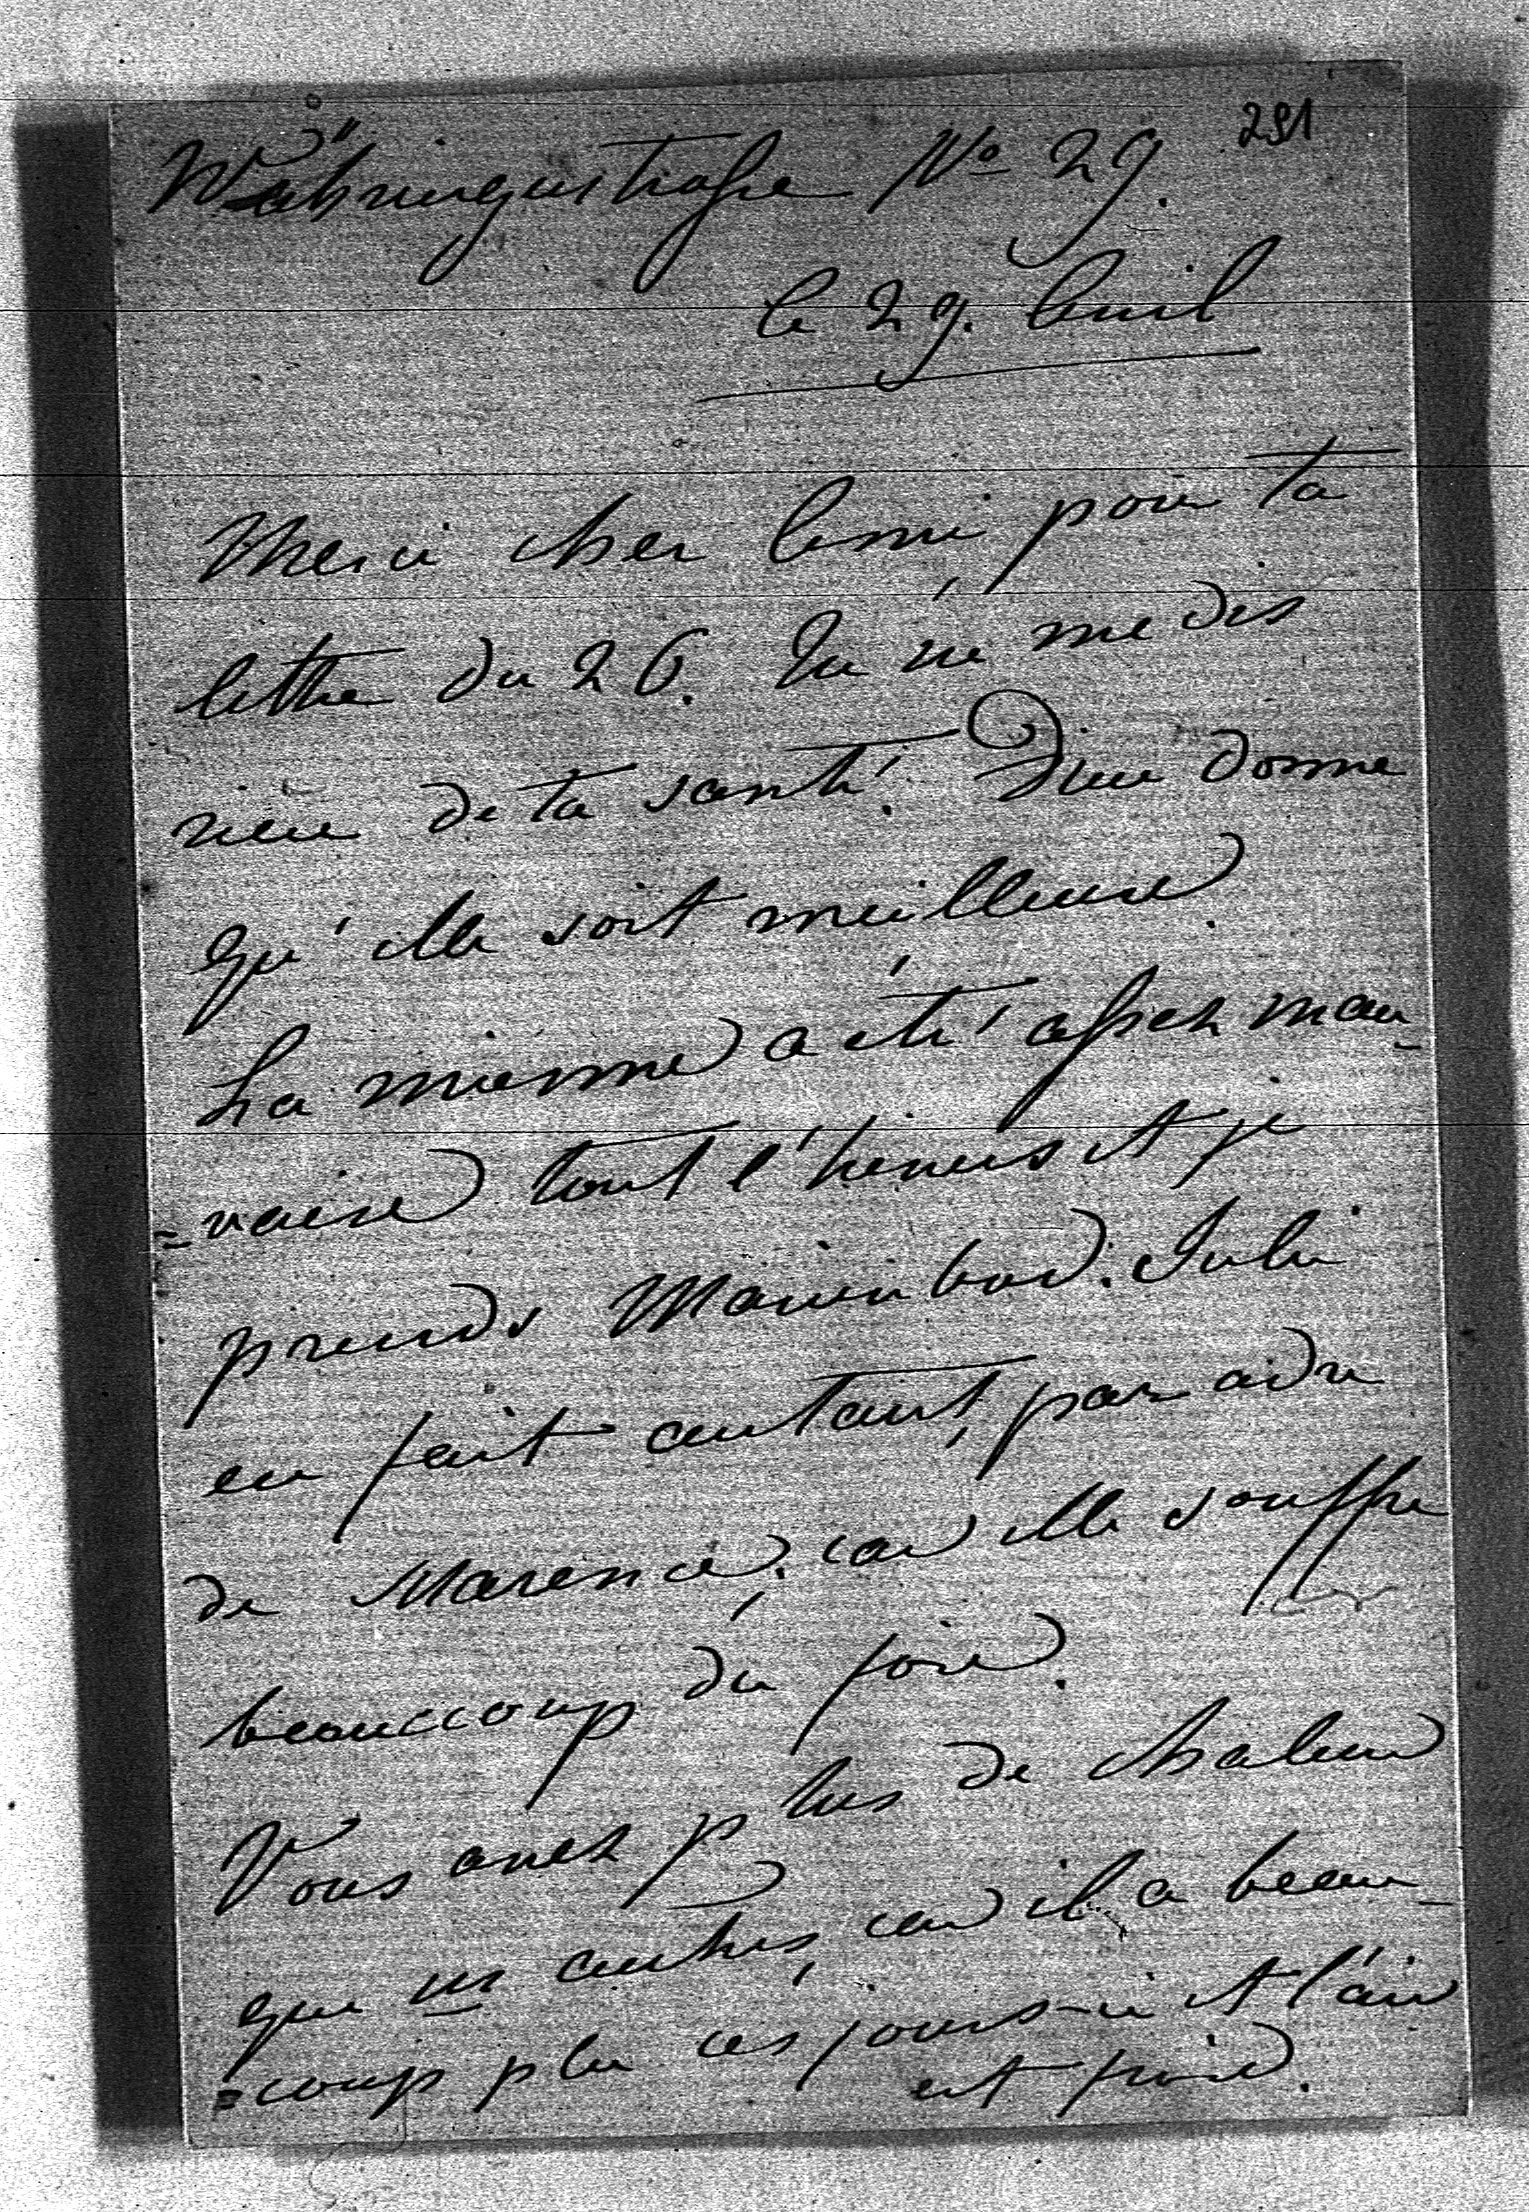 291
Währingerstraße No 29.
le 29. Avril
Merci cher Ami, pour ta
lettre du 26. Tu ne me dis
rien de ta santé! Dieu donne
qu'elle soit meilleure.
La mienne a été assez mau-
=vaise tout l'hiver et je
prends Marienbad. Julie
en fait autant, par ordre
de, car elle souffre
beaucoup du foie.
Vous avez plus de chaleur
que ns autres, car il a beau-
=coup plu ces jours-ci et l'air
est froid.